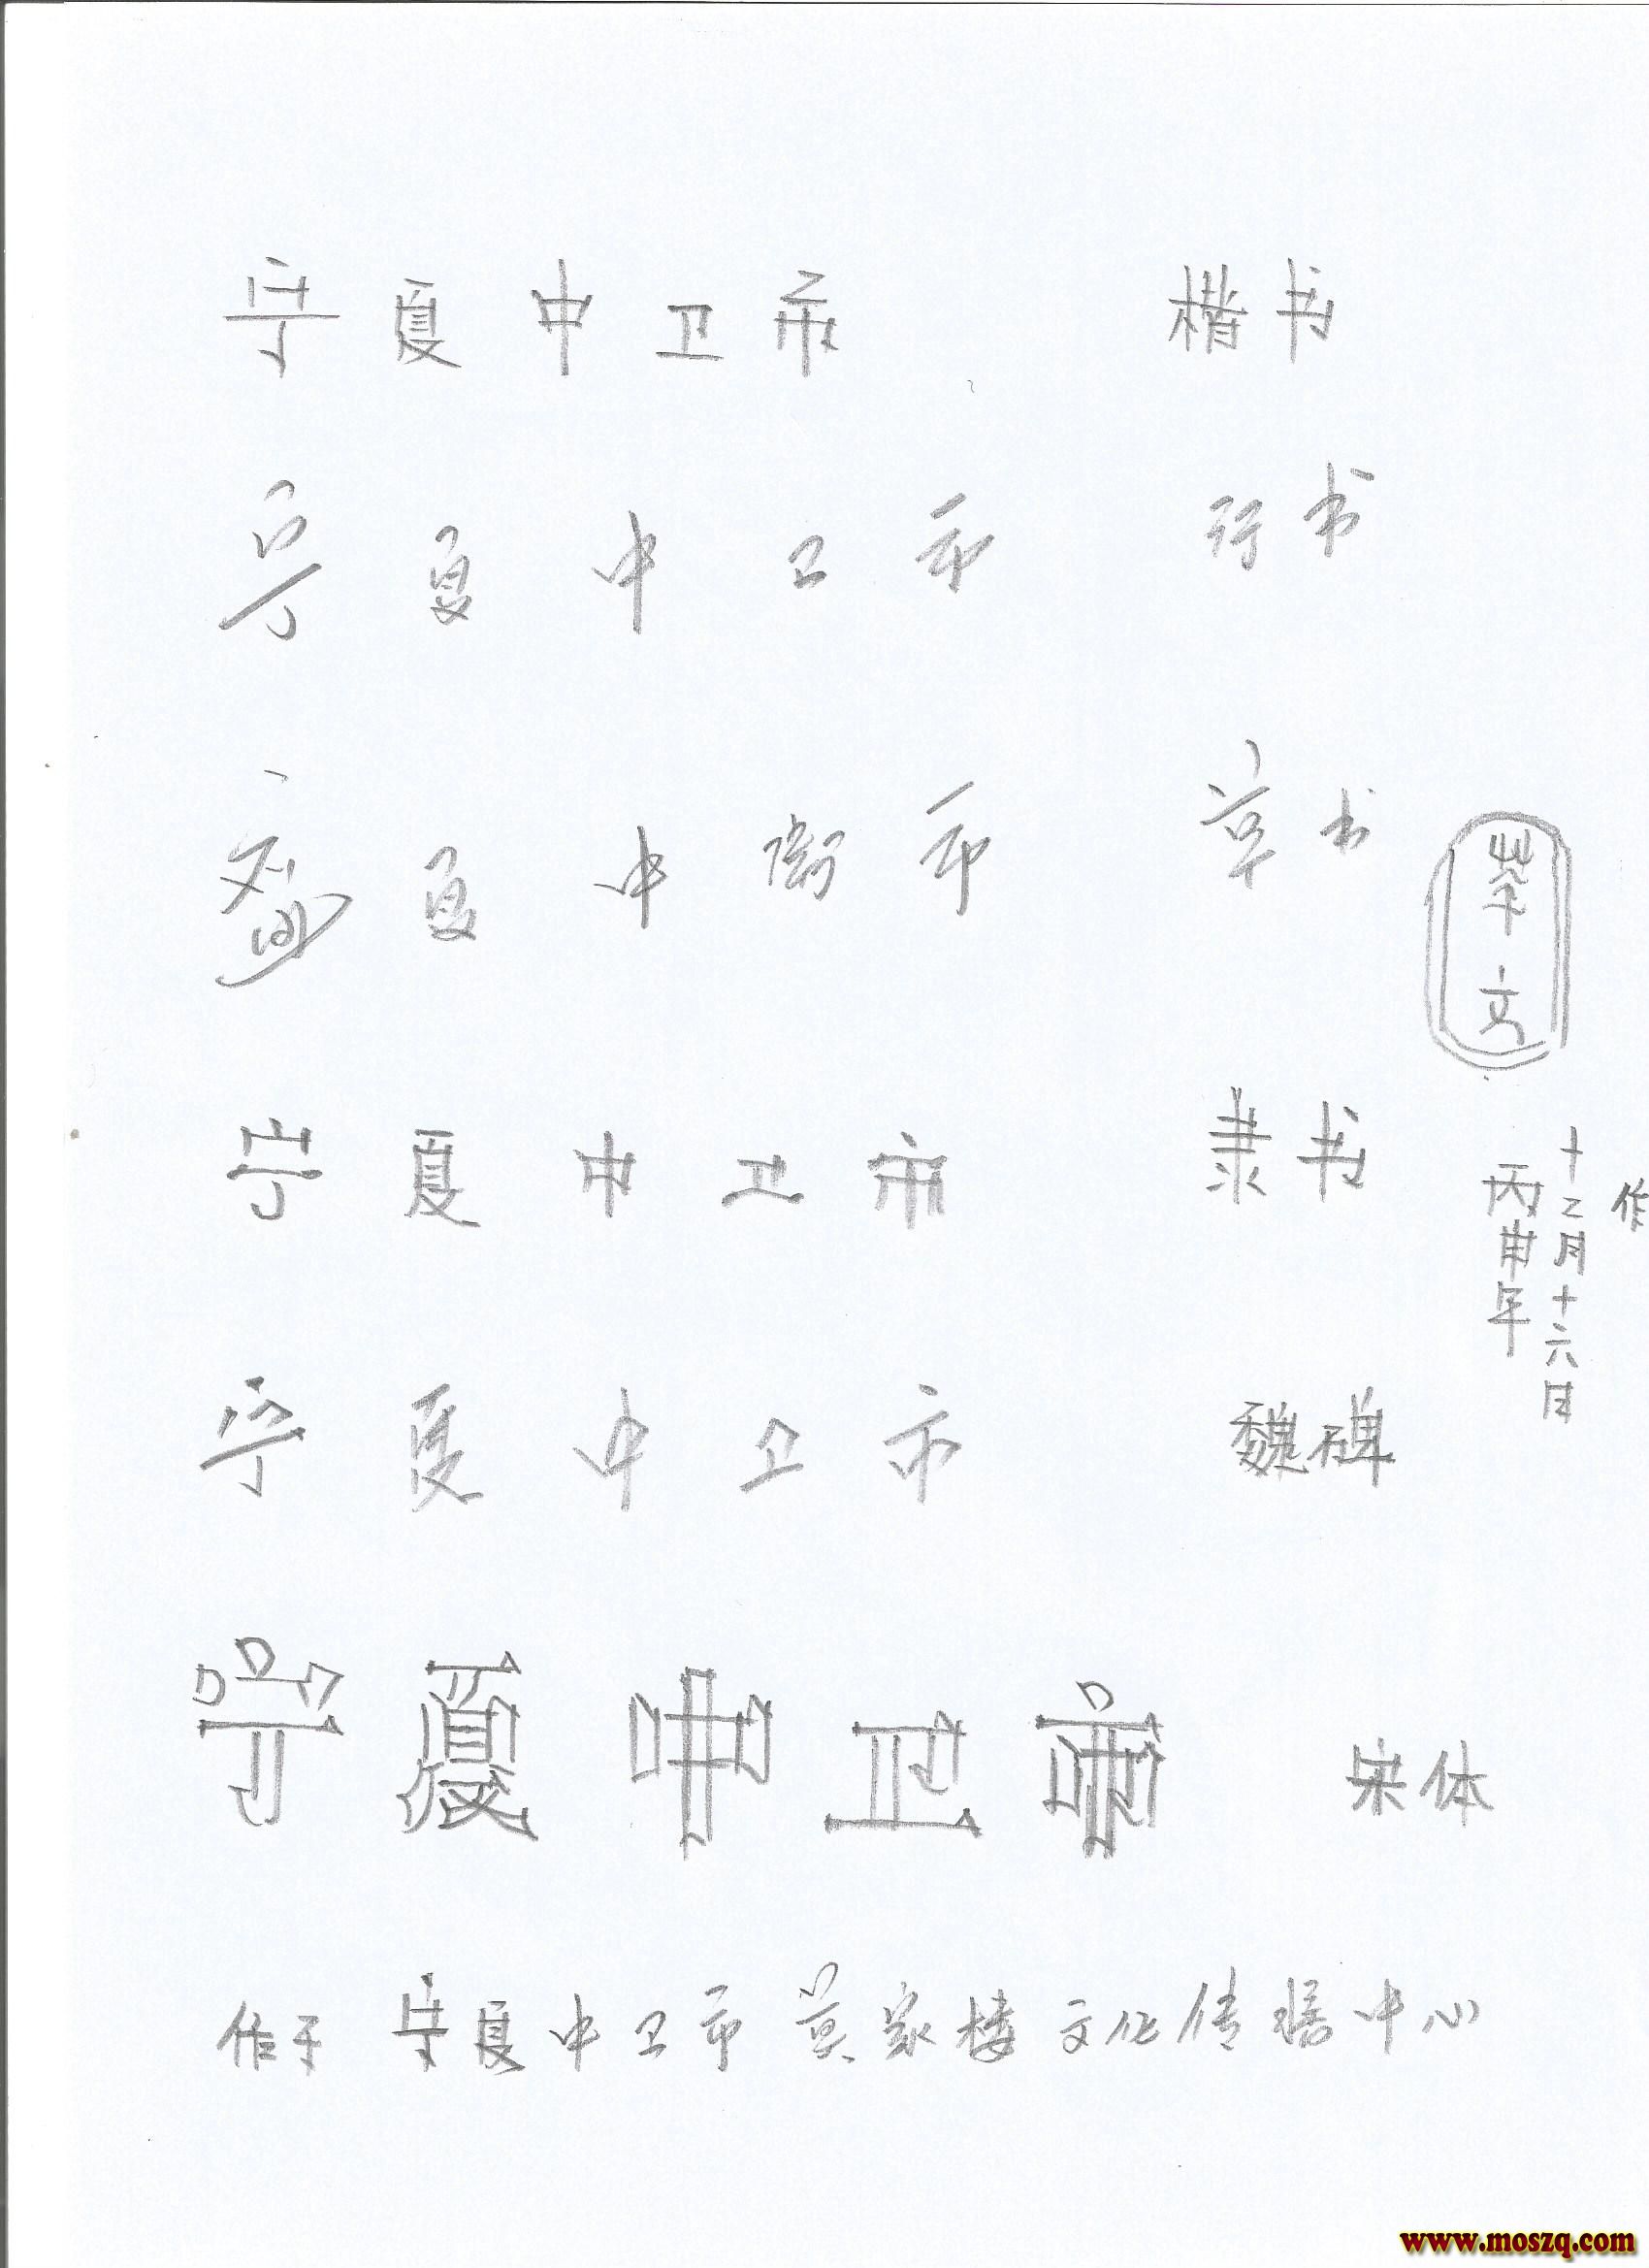 宁夏中卫市 楷书
宁夏中卫市 行书
寧夏中衛市 草书
宁夏中卫市 隶书
丙申年
十二月十六日
作
宁夏中卫市 魏碑
宁夏中卫市 宋体
作于 宁夏中卫市 莫家楼 文化传播中心
www.moszq.com